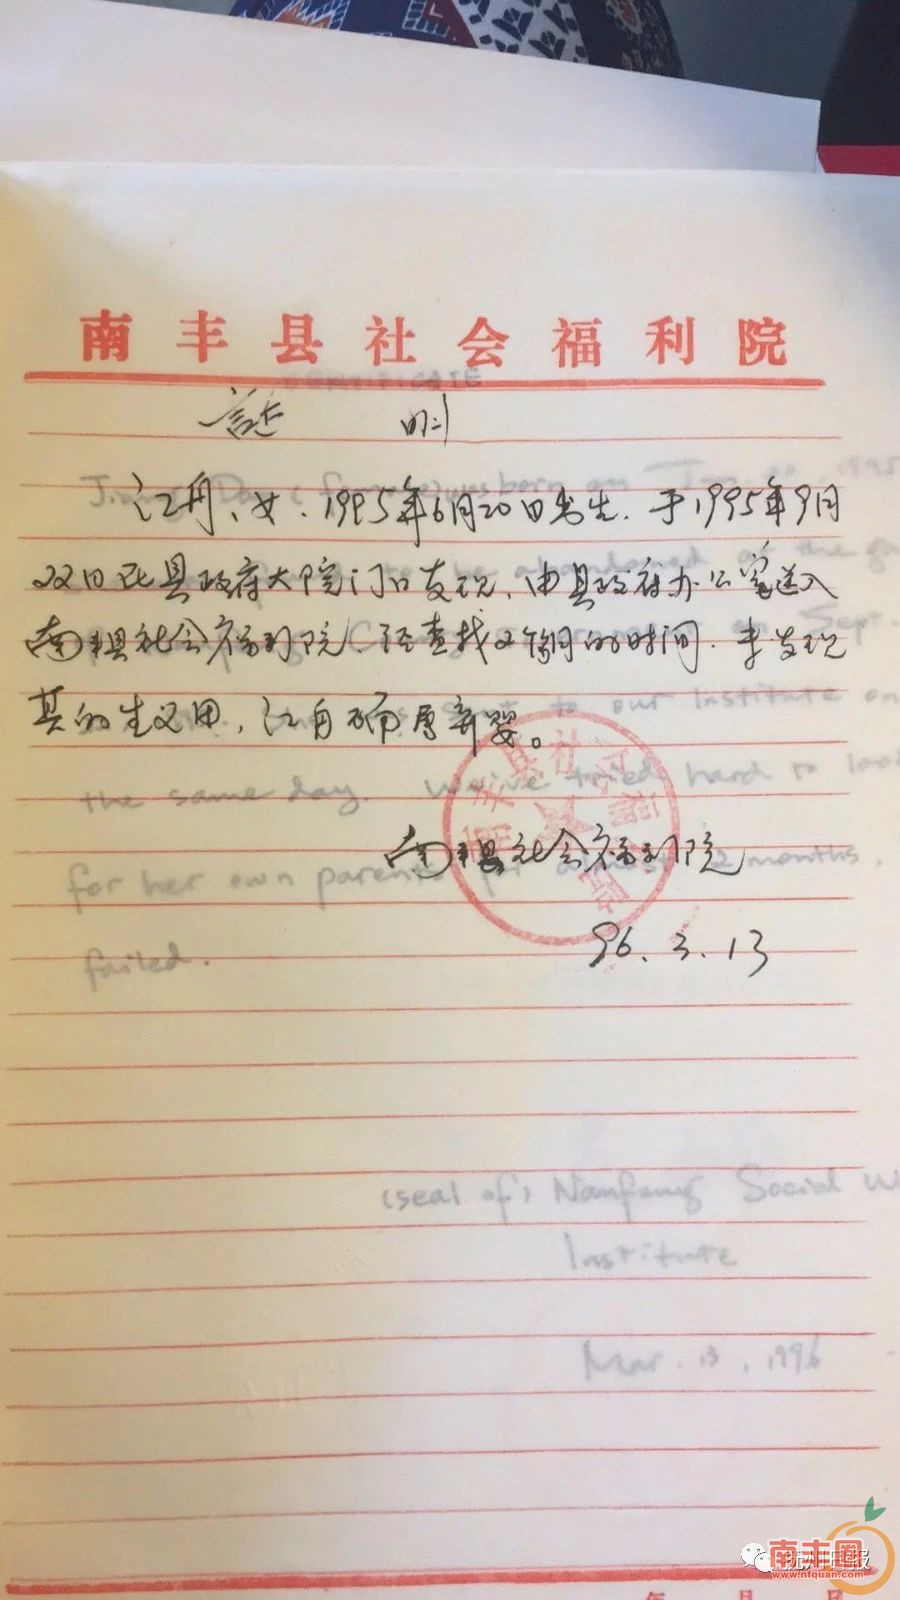 南丰县社会福利院
CERTIFICATE
证 明
江丹、女、1995年6月20日出生，于1995年9月
双日在县政府大院门口发现，由县政府办公室送入
南丰县社会福利院，经查找2个月的时间，未发现
其的生父母，江丹确属弃婴。
to our institute on
the same day. We've tried hard to
for her own parents for 2 months,
failed.
南丰县社会福利院
96.3.13
(seal of) Nanfeng Social W
Institute
Mar. 13, 1996
南丰圈
www.nfquan.com
年 月 日